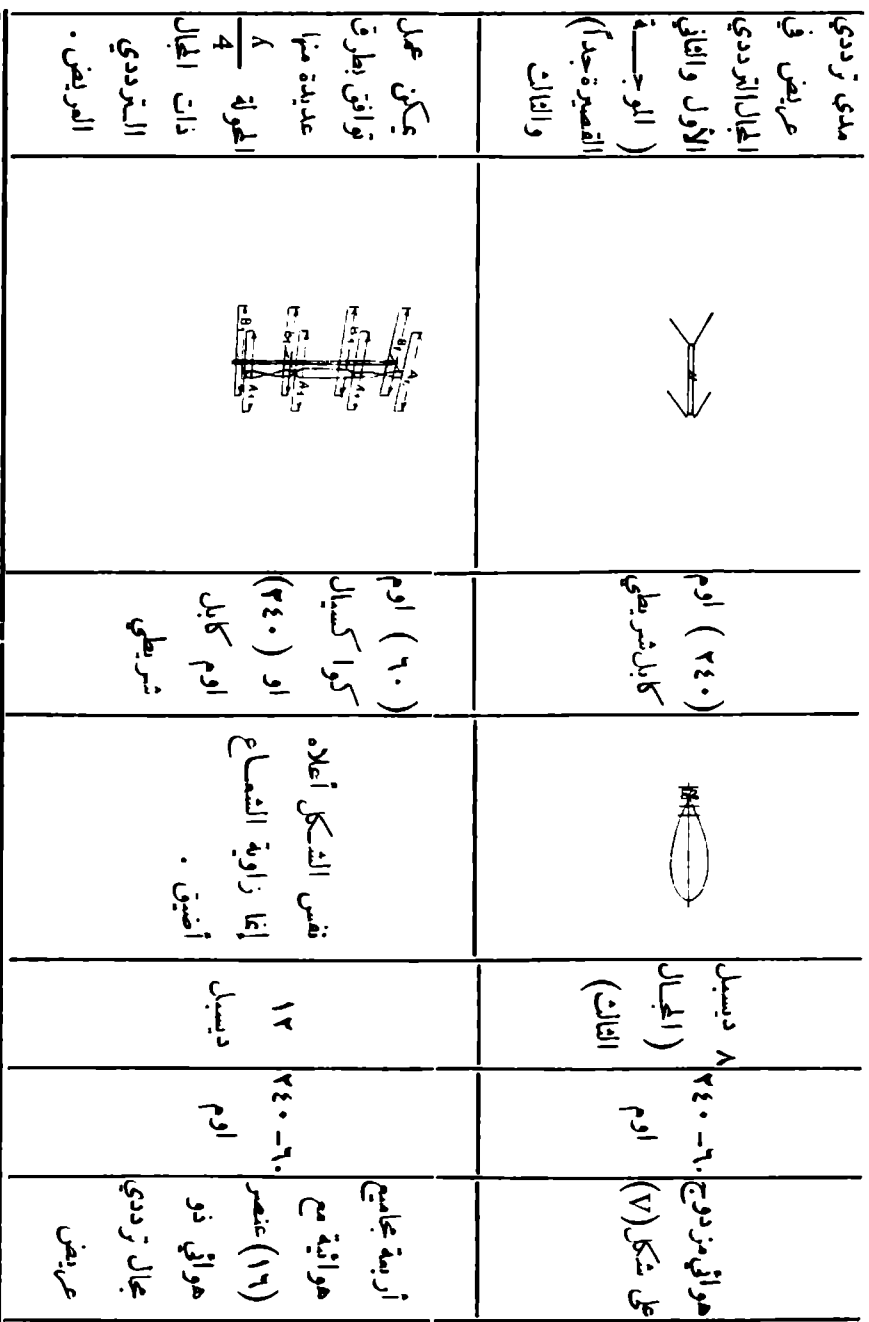 هوائي مزدوج
على شكل (V)
٦٠ – ٢٤٠
اوم
٨ ديسبل
(المجال
الثالث)
(٢٤٠) اوم
كابل شريطي
مدى ترددي
عريض في
المجال الترددي
الأول والثاني
(الموجـــة
القصيرة جداً)
والثالث
أربعة مجاميع
هوائية مع
(١٦) عنصر
هوائي ذو
مجال ترددي
عريض
٦٠ – ٢٤٠
اوم
١٢
ديسبل
نفس الشكل أعلاه
إنما زاوية الشعاع
أضيق .
(٦٠) اوم
كوا كسيال
او (٢٤٠)
اوم كابل
شريطي
B₁
A₁
B₁
A₁
B₁
A₁
B₁
A₁
يمكن عمل
توافق بطرق
عديدة منها
المحولة λ/4
ذات المجال
الترددي
العريض .